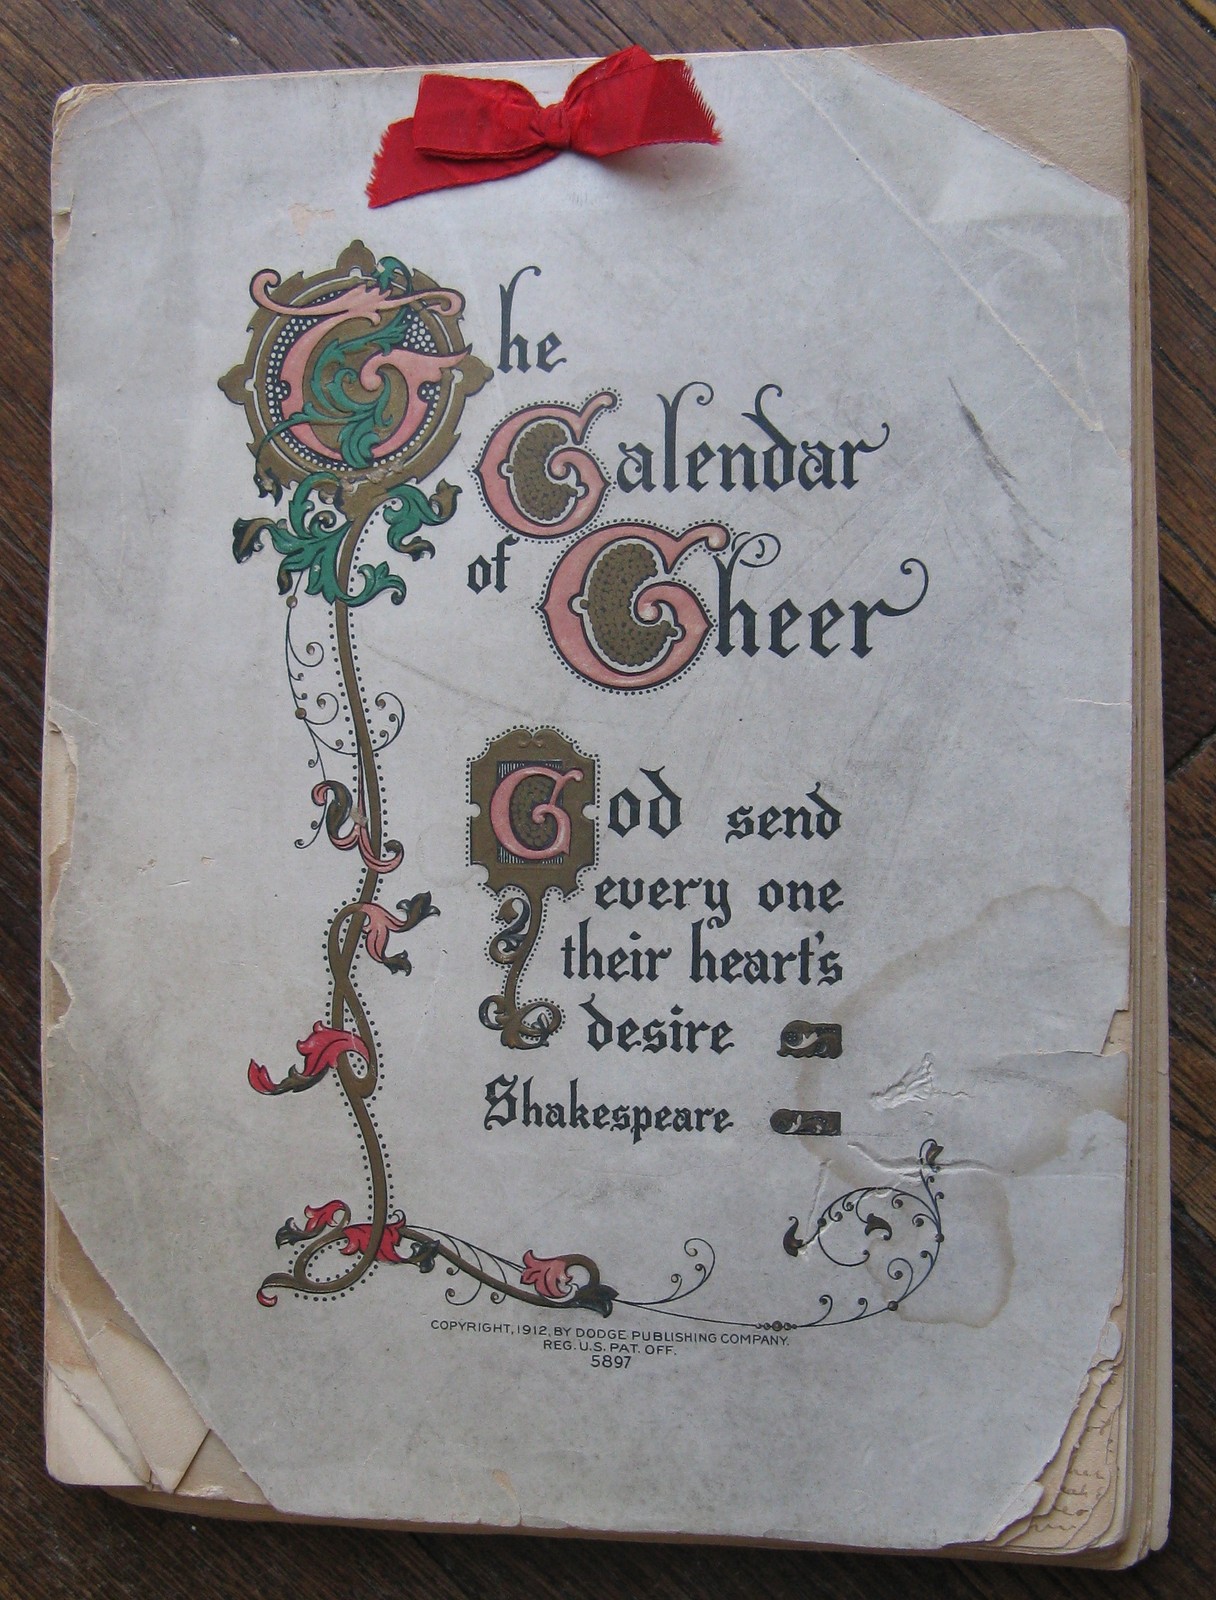 The
Calendar
of Cheer
God send
every one
their heart's
desire
Shakespeare
COPYRIGHT, 1912, BY DODGE PUBLISHING COMPANY.
REG. U.S. PAT. OFF.
5897